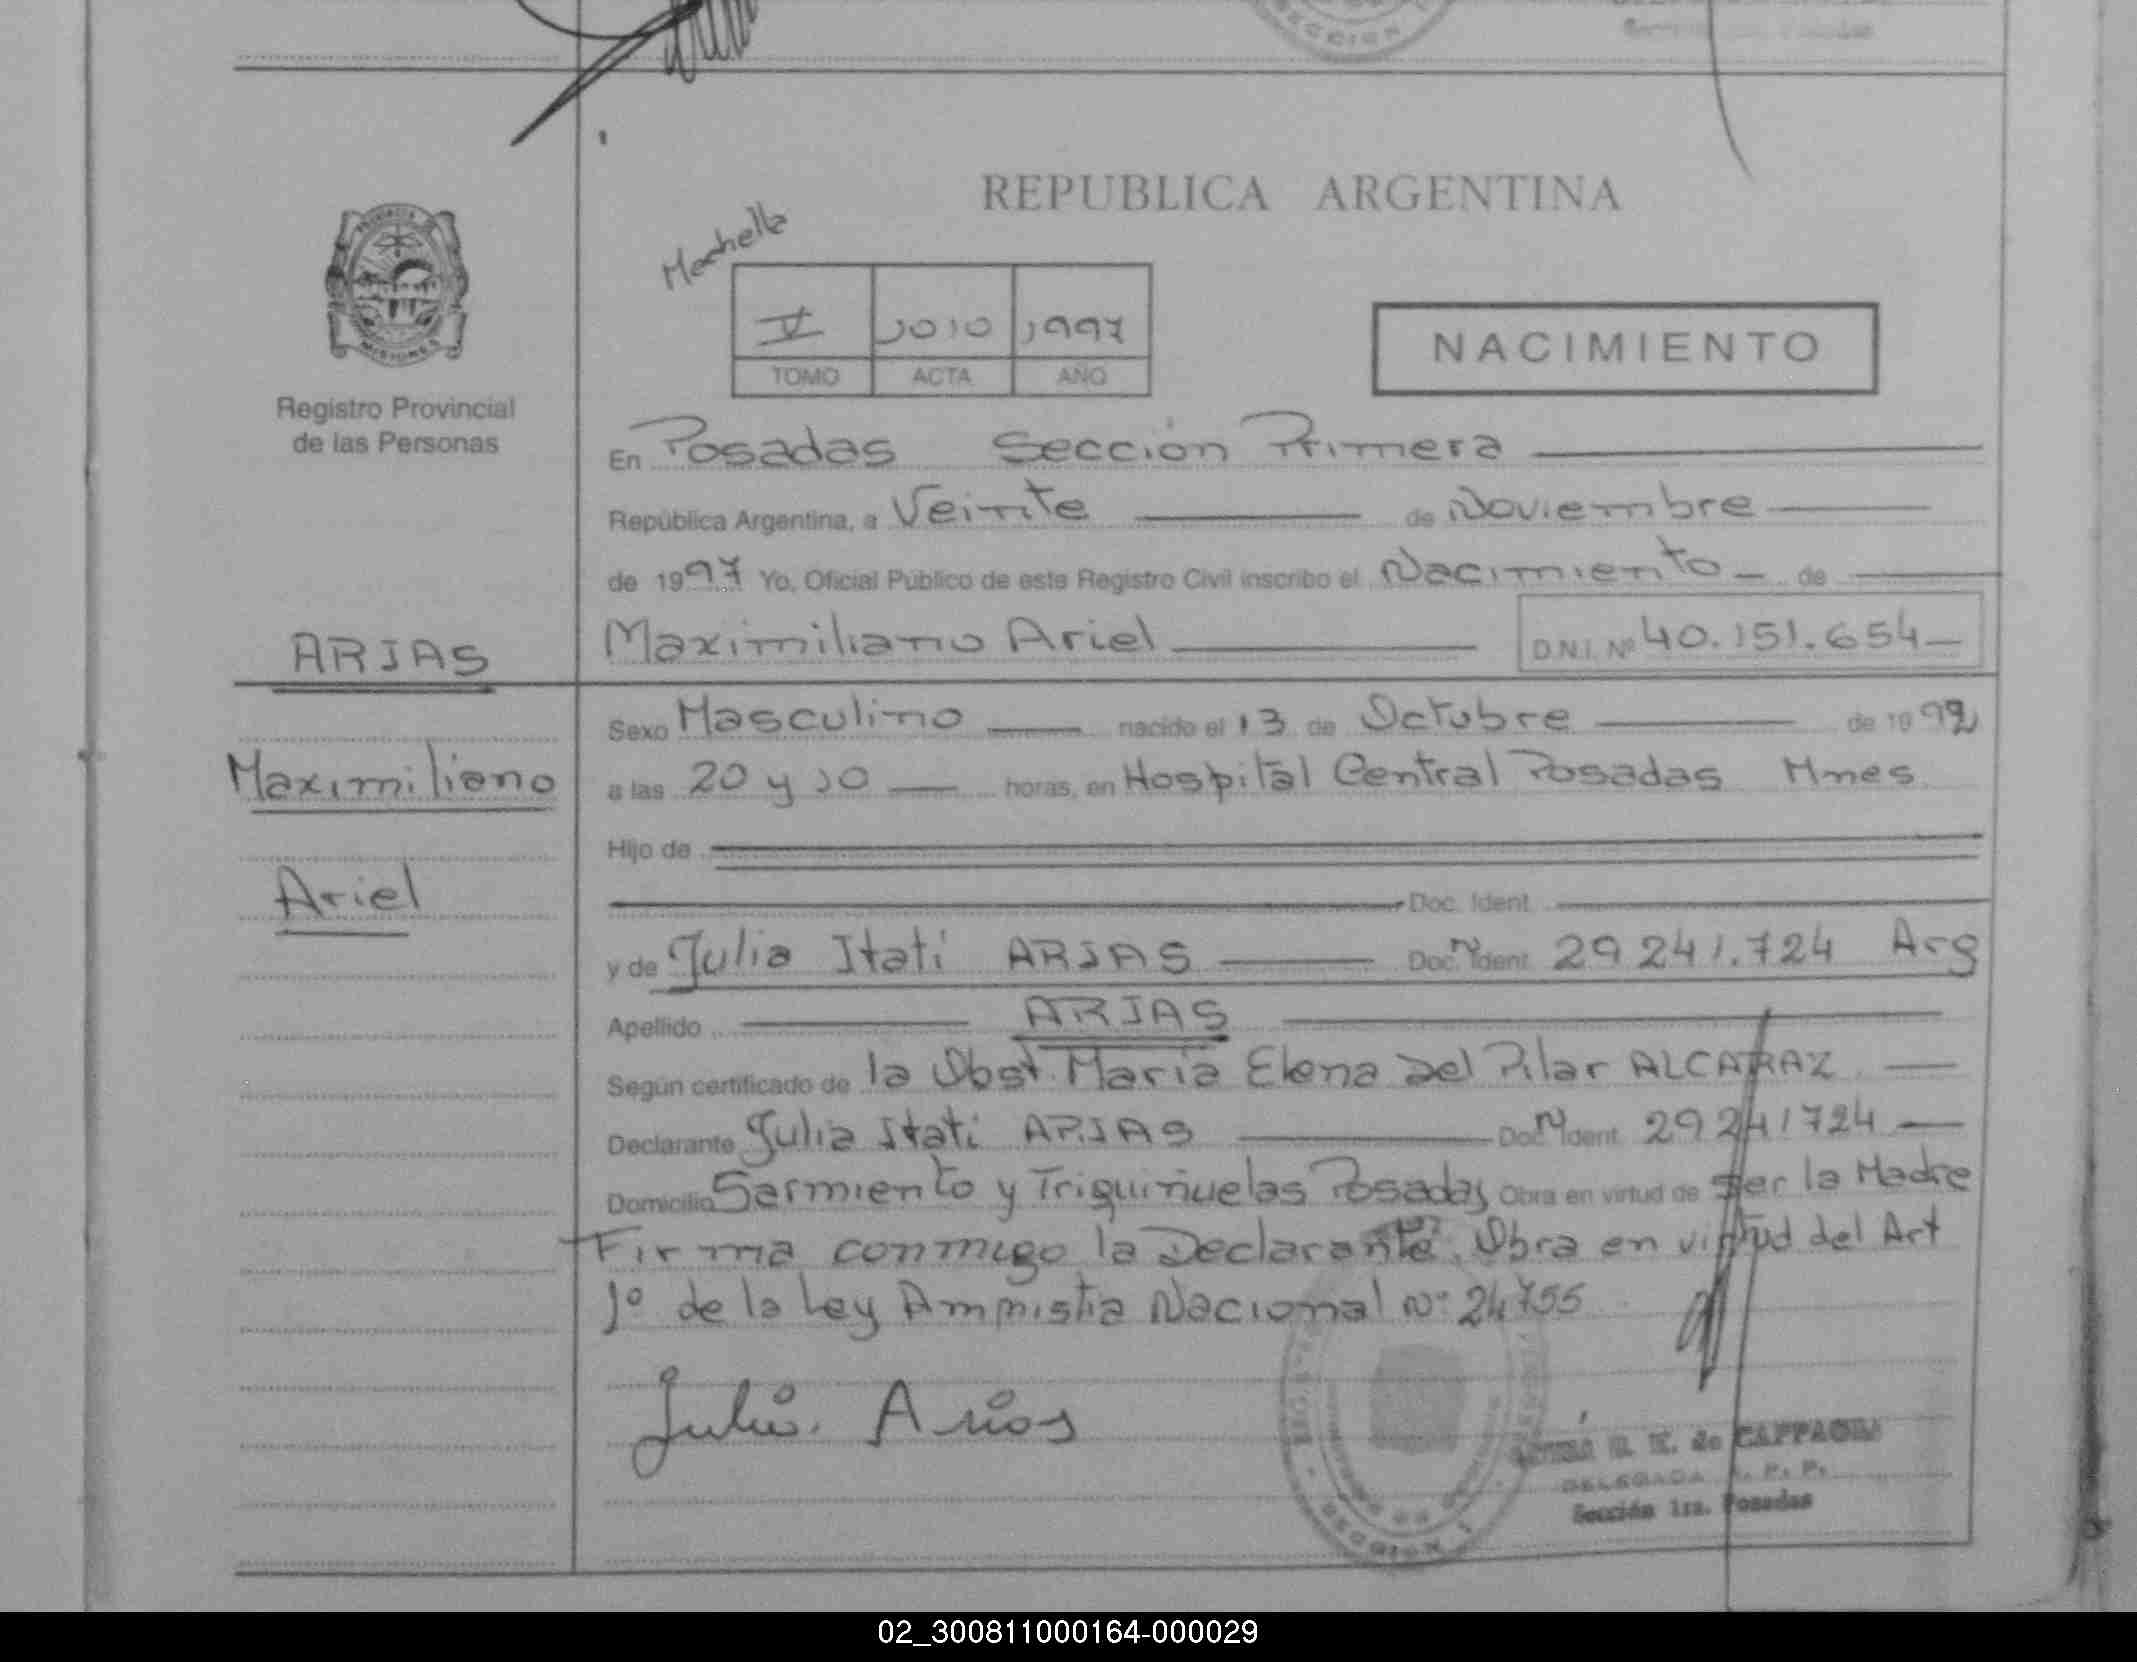 SECCION
REPUBLICA ARGENTINA
PROVINCIA
MISIONES
V 1010 1997
TOMO ACTA AÑO
NACIMIENTO
Registro Provincial
de las Personas
En Posadas Sección Primera
República Argentina, a Veinte de Noviembre
de 1997 Yo, Oficial Público de este Registro Civil inscribo el Nacimiento de
ARIAS
Maximiliano Ariel D.N.I. Nº 40.151.654
Sexo Masculino nacido el 13 de Octubre de 1992
Maximiliano
a las 20 y 10 horas, en Hospital Central Posadas Mnes
Hijo de
Ariel
Doc. Ident.
y de Julia Itati ARIAS Doc. Ident. 29 241.724 Arg
Apellido ARIAS
Según certificado de la Obst. María Elena Del Pilar ALCATRAZ
Declarante Julia Itati ARIAS Doc. Ident. 29 241724
Domicilio Sarmiento y Triquiñuelas Posadas Obra en virtud de Ser la Madre
Firma conmigo la Declarante. Obra en virtud del Art
1º de la Ley Amnistia Nacional Nº 24755
Julia Arias
de CAFFAGNI
DELEGADA R. P. P.
Sección 1ra. Posadas
SECCION 1
02_300811000164-000029